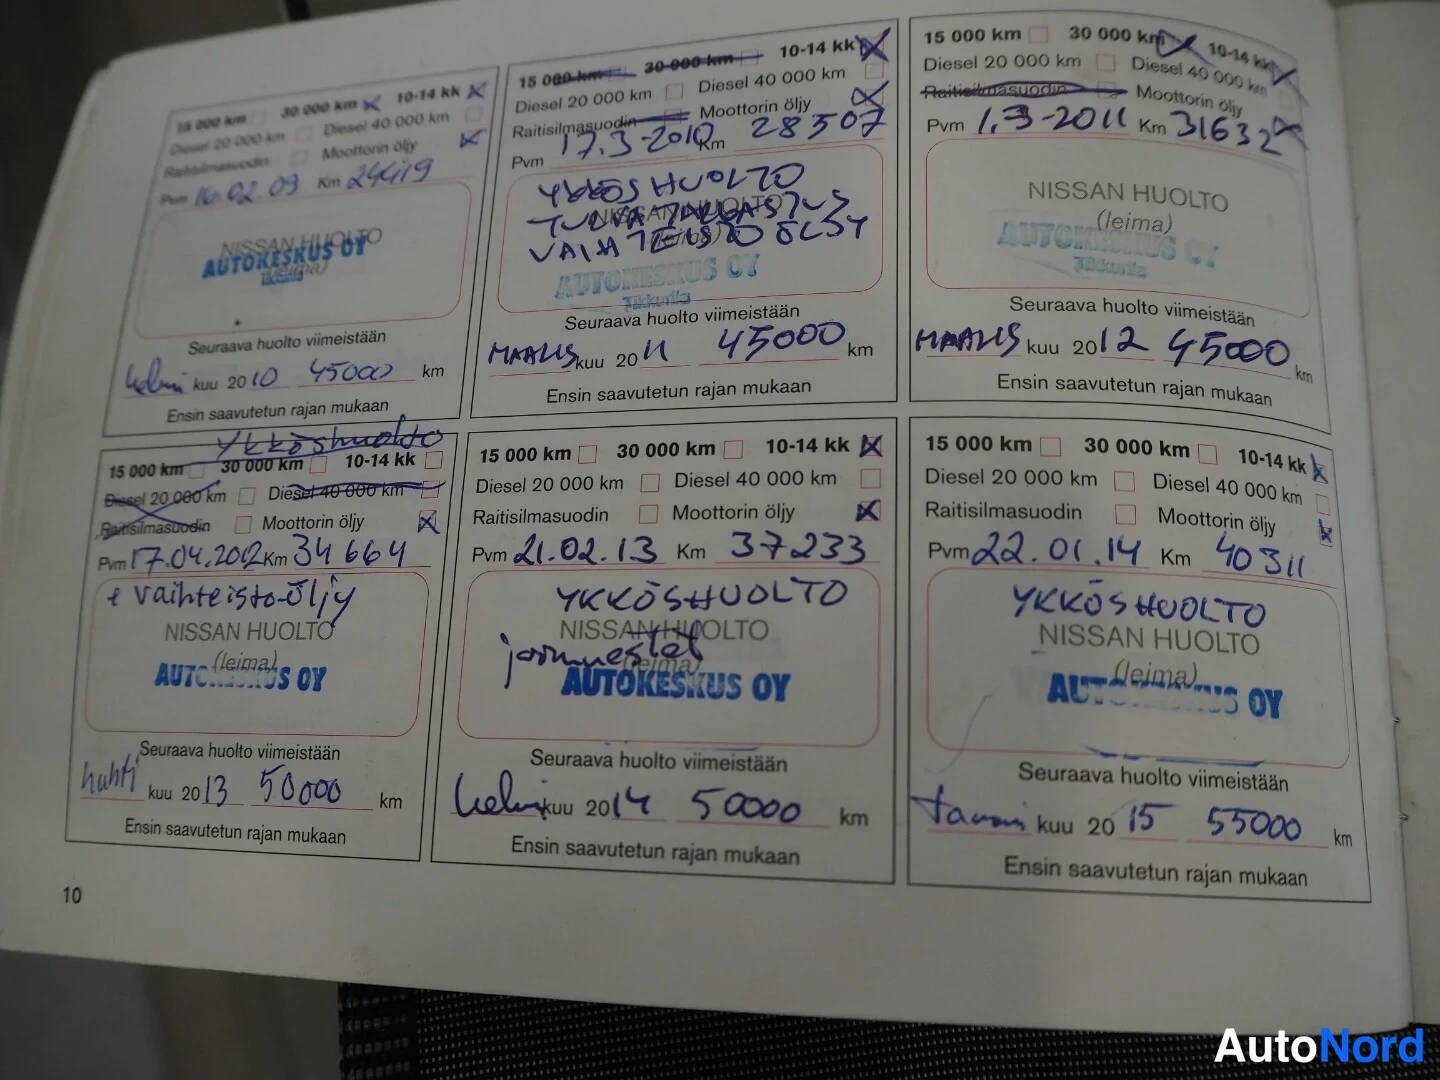 15 000 km 30 000 km 10-14 kk
Diesel 20 000 km Diesel 40 000 km
Raitisilmasuodin Moottorin öljy
Pvm 16.02 09 Km 24419
NISSAN HUOLTO
(leima)
AUTOKESKUS OY
Seuraava huolto viimeistään
helmi kuu 2010 45000 km
Ensin saavutetun rajan mukaan
15 000 km 30 000 km 10-14 kk
Diesel 20 000 km Diesel 40 000 km
Raitisilmasuodin Moottorin öljy
Pvm 17.3-2010 Km 28507
YKKÖSHUOLTO
NISSAN HUOLTO
VAIHTEISTO ÖLJY
AUTOKESKUS OY
Tikkurila
Seuraava huolto viimeistään
MAALIS kuu 2011 45000 km
Ensin saavutetun rajan mukaan
15 000 km 30 000 km 10-14 kk
Diesel 20 000 km Diesel 40 000 km
Raitisilmasuodin Moottorin öljy
Pvm 1.3-2011 Km 31632
NISSAN HUOLTO
(leima)
AUTOKESKUS OY
Tikkurila
Seuraava huolto viimeistään
MAALIS kuu 2012 45000 km
Ensin saavutetun rajan mukaan
Ykköshuolto
15 000 km 30 000 km 10-14 kk
Diesel 20 000 km Diesel 40 000 km
Raitisilmasuodin Moottorin öljy
Pvm 17.04.2012 Km 34 664
+ vaihteisto-öljy
NISSAN HUOLTO
(leima)
AUTOKESKUS OY
Seuraava huolto viimeistään
huhti kuu 2013 50000 km
Ensin saavutetun rajan mukaan
15 000 km 30 000 km 10-14 kk
Diesel 20 000 km Diesel 40 000 km
Raitisilmasuodin Moottorin öljy
Pvm 21.02.13 Km 37233
YKKÖSHUOLTO
NISSAN HUOLTO
jarrunestet
(leima)
AUTOKESKUS OY
Seuraava huolto viimeistään
helmi kuu 2014 50000 km
Ensin saavutetun rajan mukaan
15 000 km 30 000 km 10-14 kk
Diesel 20 000 km Diesel 40 000 km
Raitisilmasuodin Moottorin öljy
Pvm 22.01.14 Km 40311
YKKÖSHUOLTO
NISSAN HUOLTO
(leima)
AUTOKESKUS OY
Seuraava huolto viimeistään
tammi kuu 2015 55000 km
Ensin saavutetun rajan mukaan
10
AutoNord